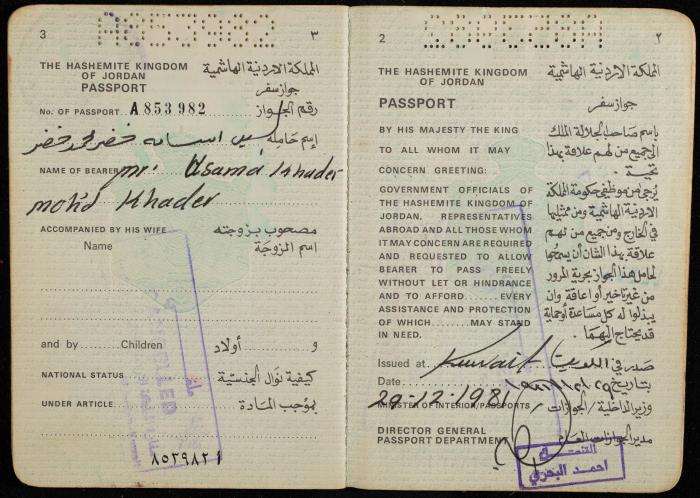 3 ٣
THE HASHEMITE KINGDOM OF JORDAN المملكة الاردنية الهاشمية
PASSPORT جواز سفر
No. OF PASSPORT A 853982 رقم الجواز
إسم حامله السيد اسامه خضر محمد خضر
NAME OF BEARER mr. Usama Khader
moh'd Khader
ACCOMPANIED BY HIS WIFE مصحوب بزوجته
Name اسم الزوجة
and by Children و أولاد
NATIONAL STATUS كيفية نوال الجنسية
UNDER ARTICLE بموجب المادة
CANCELLED
ملغى
2 ٢
THE HASHEMITE KINGDOM OF JORDAN المملكة الاردنية الهاشمية
PASSPORT جواز سفر
BY HIS MAJESTY THE KING بإسم صاحب الجلالة الملك
TO ALL WHOM IT MAY الى جميع من لهم علاقة بهذا
CONCERN GREETING: تحية
GOVERNMENT OFFICIALS OF يرجى من موظفي حكومة المملكة
THE HASHEMITE KINGDOM OF الاردنية الهاشمية ومن ممثليها
JORDAN. REPRESENTATIVES في الخارج ومن جميع من لهم
ABROAD AND ALL THOSE WHOM علاقة بهذا الشأن أن يسمحوا
IT MAY CONCERN ARE REQUIRED لحامل هذا الجواز بحرية المرور
AND REQUESTED TO ALLOW من غير تأخير أو اعاقة وان
BEARER TO PASS FREELY يبذلوا له كل مساعدة أو حماية
WITHOUT LET OR HINDRANCE قد يحتاج اليهما.
AND TO AFFORD EVERY
ASSISTANCE AND PROTECTION
OF WHICH MAY STAND
IN NEED.
Issued at Kuwait صدر في الكويت
Date 29-12-1981 بتاريخ
MINISTER OF INTERIOR/PASSPORTS وزير الداخلية / الجوازات
DIRECTOR GENERAL
PASSPORT DEPARTMENT مدير الجوازات العام
القنصل
احمد البحري